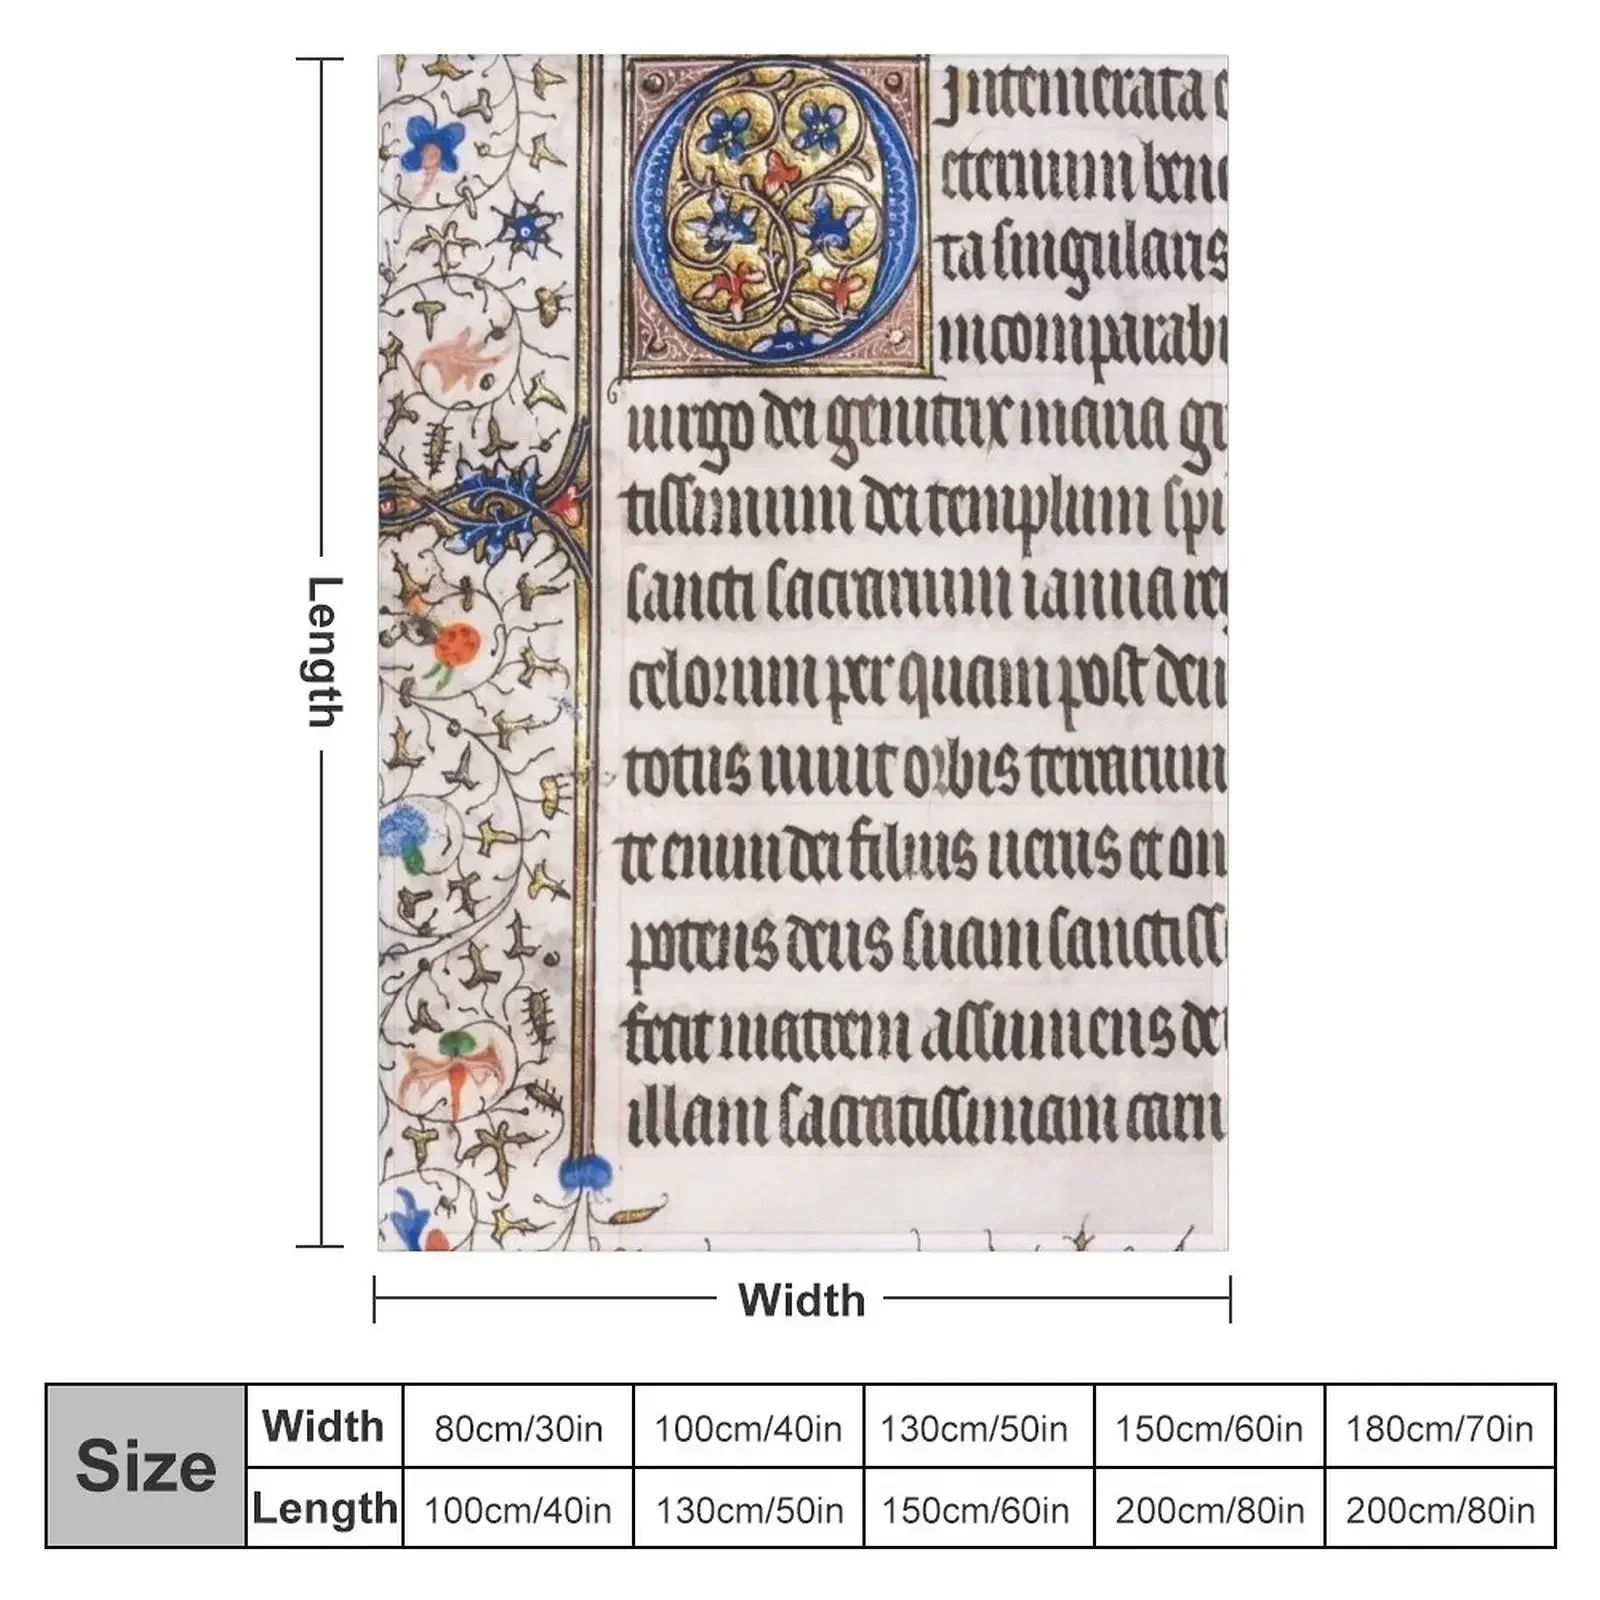 O Intemerata e
eternum bene
ta singularis
incomparabi
uirgo dei genitrix maria gr
tissimum dei templum spi
sancti sacrarium ianua re
celorum per quam post deu
totus uiuit orbis terrarum
te enim dei filius uerus et on
potens deus suam sanctiss
fecit matrem assumens de
illam sacratissimam carn
Length
Width
Size Width 80cm/30in 100cm/40in 130cm/50in 150cm/60in 180cm/70in
Length 100cm/40in 130cm/50in 150cm/60in 200cm/80in 200cm/80in